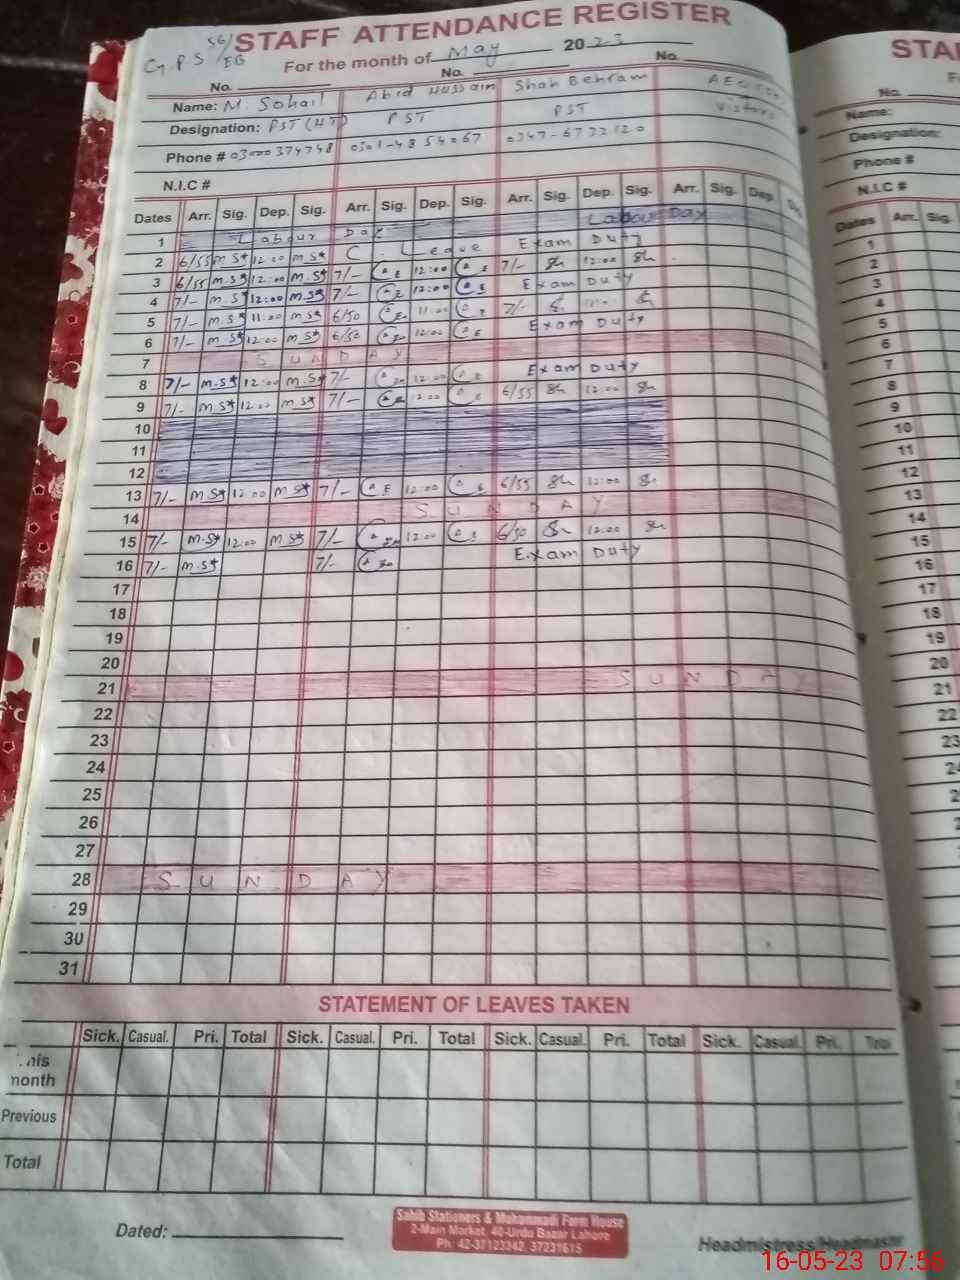 STAFF ATTENDANCE REGISTER
G.P.S 56/EB For the month of May 2023
No. No. No.
Name: M. Sohail Abid Hussain Shah Behram
Designation: PST (HT) PST PST Visitors
Phone # 0301-4854067 0347-6732120
N.I.C #
Dates Arr. Sig. Dep. Sig. Arr. Sig. Dep. Sig. Arr. Sig. Dep. Sig. Arr. Sig. Dep. Sig.
1 Labour Day Labour Day
2 6/55 m.s 12:00 m.s C. Leave Exam Duty
3 6/55 m.s 12:00 m.s 7/- 12:00 7/- Sh 12:00 Sh
4 7/- m.s 12:00 m.s 7/- 12:00 Exam Duty
5 7/- m.s 11:00 m.s 6/50 11:00 7/- Sh
6 7/- m.s 12:00 m.s 6/50 12:00 Exam Duty
7 SUNDAY
8 7/- m.s 12:00 m.s 7/- 12:00 Exam Duty
9 7/- m.s 12:00 m.s 7/- 12:00 6/55 Sh 12:00 Sh
10
11
12
13 7/- m.s 12:00 m.s 7/- 12:00 6/55 Sh 12:00 Sh
14 SUNDAY
15 7/- m.s 12:00 m.s 7/- 12:00 6/50 Sh 12:00 Sh
16 7/- m.s 7/- Exam Duty
17
18
19
20
21 SUNDAY
22
23
24
25
26
27
28 SUNDAY
29
30
31
STATEMENT OF LEAVES TAKEN
Sick. Casual. Pri. Total Sick. Casual. Pri. Total Sick. Casual. Pri. Total Sick. Casual. Pri. Total
This month
Previous
Total
Dated:
Sahib Stationers & Mohammadi Form House
2-Main Market, 40-Urdu Bazar Lahore
Ph: 42-37123342, 37231615
Headmistress/Headmaster
16-05-23 07:56
STA
No.
Name:
Designation:
Phone #
N.I.C #
Dates Arr. Sig.
1
2
3
4
5
6
7
8
9
10
11
12
13
14
15
16
17
18
19
20
21
22
23